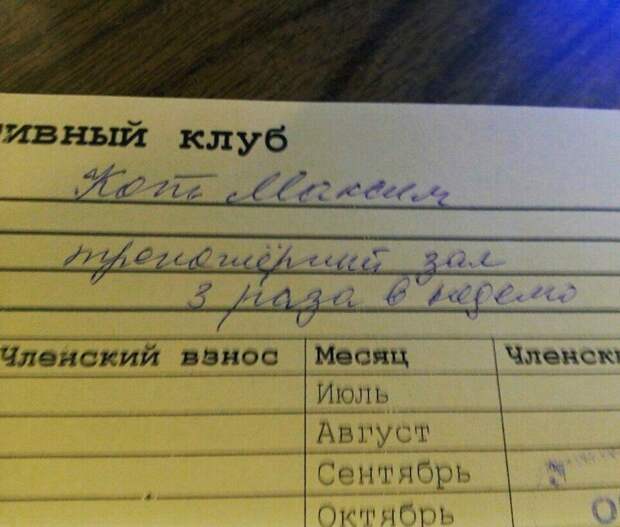 ивный клуб
Коть Максим
тренажёрний зал
3 раза в неделю
Членский взнос Месяц Членск
Июль
Август
Сентябрь
Октябрь